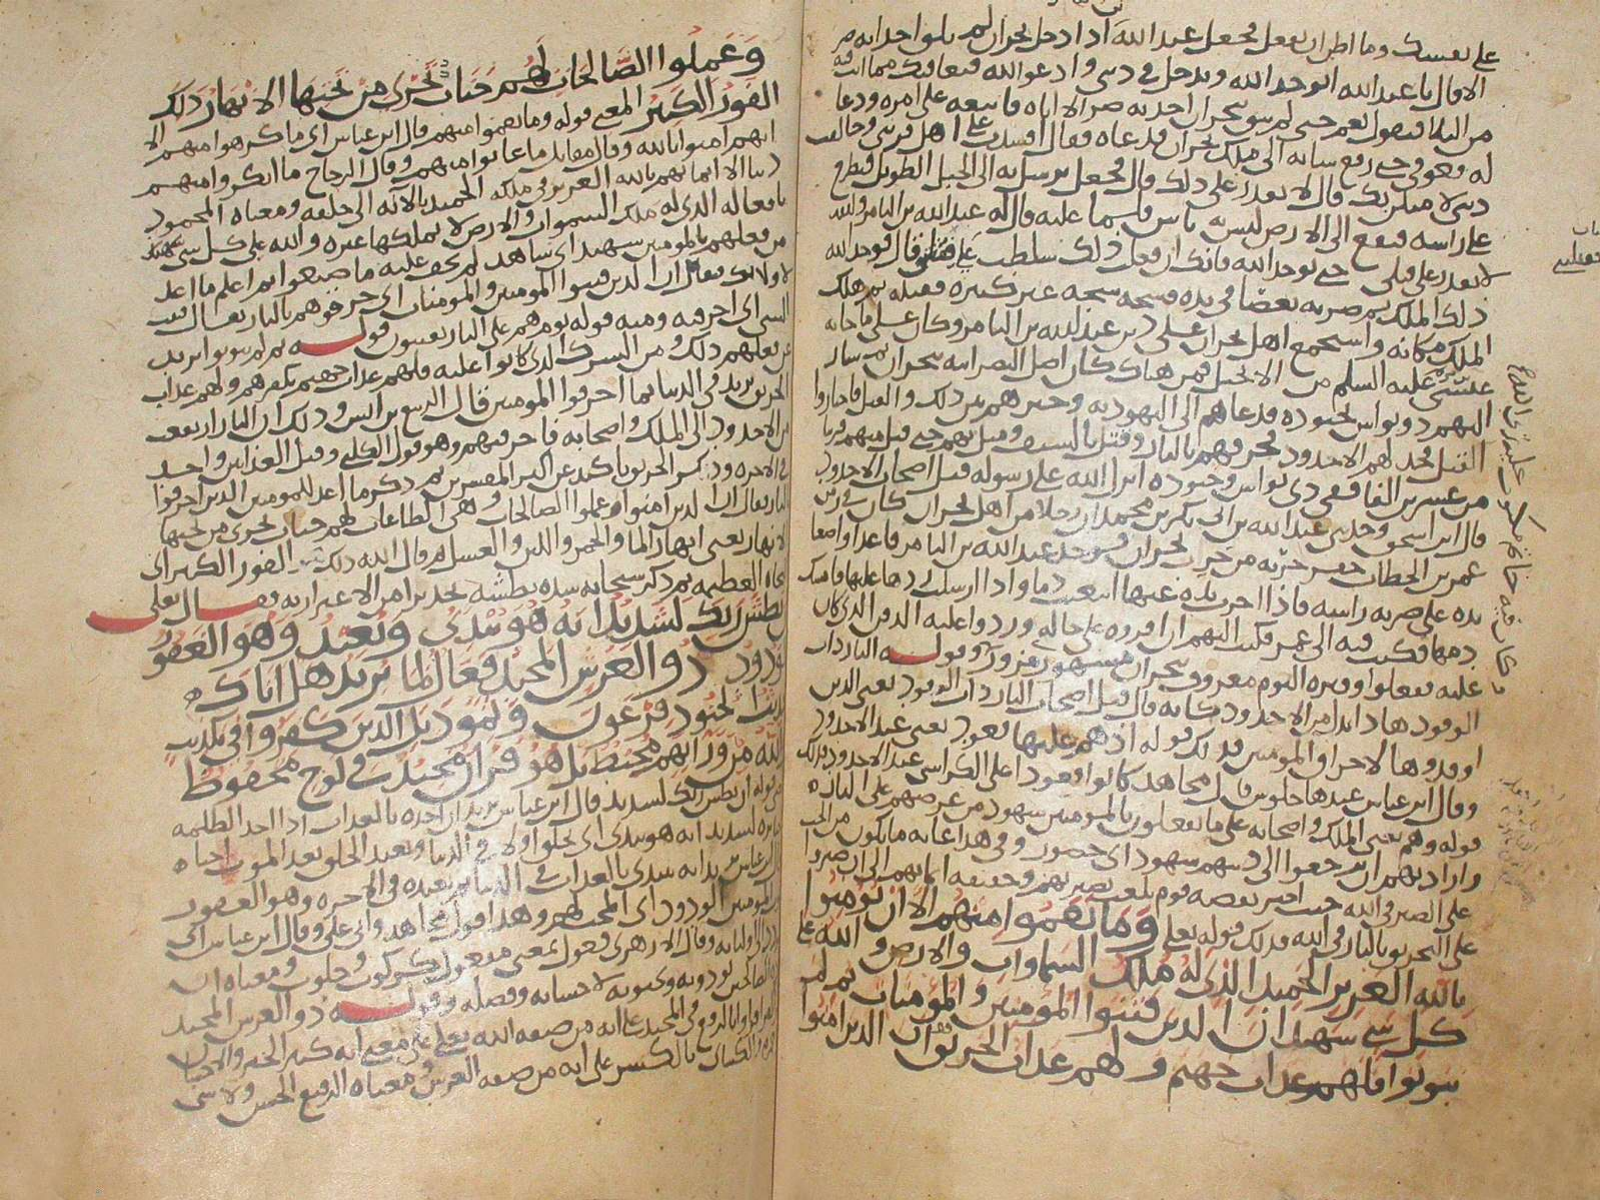 على نفسك وما اظن ان تفعل فجعل عبد الله اذا دخل نجران لم يلق احدا به ضر
الا قال يا عبد الله اتوحد الله وتدخل في ديني وادعو الله فيعافيك مما انت فيه
من البلا فيقول نعم حتى لم يبق بنجران احد به ضر الا اتاه فاتبعه على امره ودعا
له فعوفي حتى رفع شانه الى ملك نجران فدعاه فقال افسدت علي اهل قريتي وخالفت
ديني لامثلن بك قال لا تقدر على ذلك قال فجعل يرسل به الى الجبل الطويل فيطرح
على راسه فيقع الى الارض ليس به باس فلما عليه قال له عبد الله بن الثامر والله
لا تقدر على قتلي حتى توحد الله فانك ان فعلت ذلك سلطت علي فقتلتني قال فوحد الله
ذلك الملك ثم ضربه بعصا في يده فشجه شجة غير كبيرة فقتله ثم هلك
الملك مكانه واستجمع اهل نجران على دين عبد الله بن الثامر وكان على ما جا به
عيسى عليه السلم من الانجيل فمن هناك كان اصل النصرانية بنجران ثم سار
اليهم ذو نواس بجنوده فدعاهم الى اليهودية وخيرهم بين ذلك والقتل فاختاروا
القتل فخد لهم الاخدود فحرقهم بالنار وقتل بالسيف ومثل بهم حتى قتل منهم قريبا
من عشرين الفا ففي ذي نواس وجنوده انزل الله على رسوله قتل اصحاب الاخدود
قال ابن اسحق وحدثني عبد الله بن ابي بكر بن محمد ان رجلا من اهل نجران كان في زمن
عمر بن الخطاب حفر خربة من خرب نجران فوجد عبد الله بن الثامر قاعدا واضعا
يده على ضربة راسه فاذا اخرت يده عنها انبعثت دما واذا ارسلت ردها عليها فامسك
دمها فكتب فيه الى عمر فكتب اليهم ان اقروه على حاله وردوا عليه الدفن الذي كان
عليه ففعلوا وقبره اليوم معروف بنجران مشهور يزورونه وقوله النار ذات
الوقود هاذا بدل من الاخدود كانه قال قتل اصحاب النار ذات الوقود يعني الذين
اوقدوها لاحراق المومنين فذلك قوله اذ هم عليها قعود يعني عند الاخدود
وقال ابن عباس عندها جلوس قال مجاهد كانوا قعودا على الكراسي عند الاخدود فذلك
قوله وهم يعني الملك واصحابه على ما يفعلون بالمومنين شهود من عرضهم على النار
وارادتهم ان يرجعوا الى دينهم شهود اي حضور وفي هذا غاية ما يكون من الحث
على الصبر في الله حيث اخبر بقصة قوم بلغت بصيرتهم وحقيقة ايمانهم الى ان صبروا
على التحريق بالنار في الله فذلك قوله تعلى وما نقموا منهم الا ان يومنوا
بالله العزيز الحميد الذي له ملك السماوات والارض والله على
كل شي شهيد ان الذين فتنوا المومنين والمومنات ثم لم
يتوبوا فلهم عذاب جهنم ولهم عذاب الحريق ان الذين امنوا
وعملوا الصالحات لهم جنات تجري من تحتها الانهار ذلك
الفوز الكبير المعنى قوله وما نقموا منهم قال ابن عباس اي ما كرهوا منهم الا
انهم امنوا بالله وقال مقاتل ما عابوا منهم وقال الزجاج ما انكروا منهم
ذنبا الا ايمانهم بالله العزيز في ملكه الحميد بالائه الى خلقه ومعناه المحمود
بافعاله الذي له ملك السموات والارض لا يملكها غيره والله على كل شي شهيد
من فعلهم بالمومنين شهيد اي شاهد لم يخف عليه ما صنعوا ثم اعلم ما اعد
لاولئك فقال ان الذين فتنوا المومنين والمومنات اي حرقوهم بالنار يقال فتنت
الشي اي احرقته ومنه قوله يوم هم على النار يفتنون قوله ثم لم يتوبوا يريد
من فعلهم ذلك ومن الشرك الذي كانوا عليه فلهم عذاب جهنم بكفرهم ولهم عذاب
الحريق يريد في الدنيا بما احرقوا المومنين قال الربيع بن انس وذلك ان النار ارتفعت
من الاخدود الى الملك واصحابه فاحرقتهم وهو قول الكلبي وقيل العذابين واحد
في الاخرة وذكر الحريق تاكيد عن اكثر المفسرين ثم ذكر ما اعد للمومنين الذين احرقوا
بالنار فقال ان الذين امنوا وعملوا الصالحات وهي الطاعات لهم جنات تجري من تحتها
الانهار يعني انهار الما والخمر واللبن والعسل ثم قال الله ذلك الفوز الكبير اي
النجاة العظيمة ثم ذكر سبحانه شدة بطشه تحذيرا من الاغترار به فقال تعلى
بطش ربك لشديد انه هو يبدئ ويعيد وهو الغفور
الودود ذو العرش المجيد فعال لما يريد هل اتاك
حديث الجنود فرعون وثمود بل الذين كفروا في تكذيب
والله من ورائهم محيط بل هو قران مجيد في لوح محفوظ
قوله ان بطش ربك لشديد قال ابن عباس يريد ان اخذه بالعذاب اذا اخذ الظلمة
لشديد انه هو يبدي اي يخلق اولا في الدنيا ويعيد الخلق بعد الموت احيا
ابن عباس يريد انه يبدي بالعذاب في الدنيا ثم يعيده في الاخرة وهو الغفور
للمومنين الودود اي المحب لهم وهذا قول مجاهد وابي علي وقال ابن عباس اي
الى اوليائه وقال الازهري فعول بمعنى مفعول كركوب وحلوب ومعناه ان
الصالحين يودونه ويحبونه لاحسانه وفضله وقوله ذو العرش المجيد
القراة بالرفع في المجيد على انه من صفة الله تعلى على معنى انه كبير الخير والاحسان
والكسائي بالكسر على انه من صفة العرش ومعناه الرفيع الحسن ولا شي